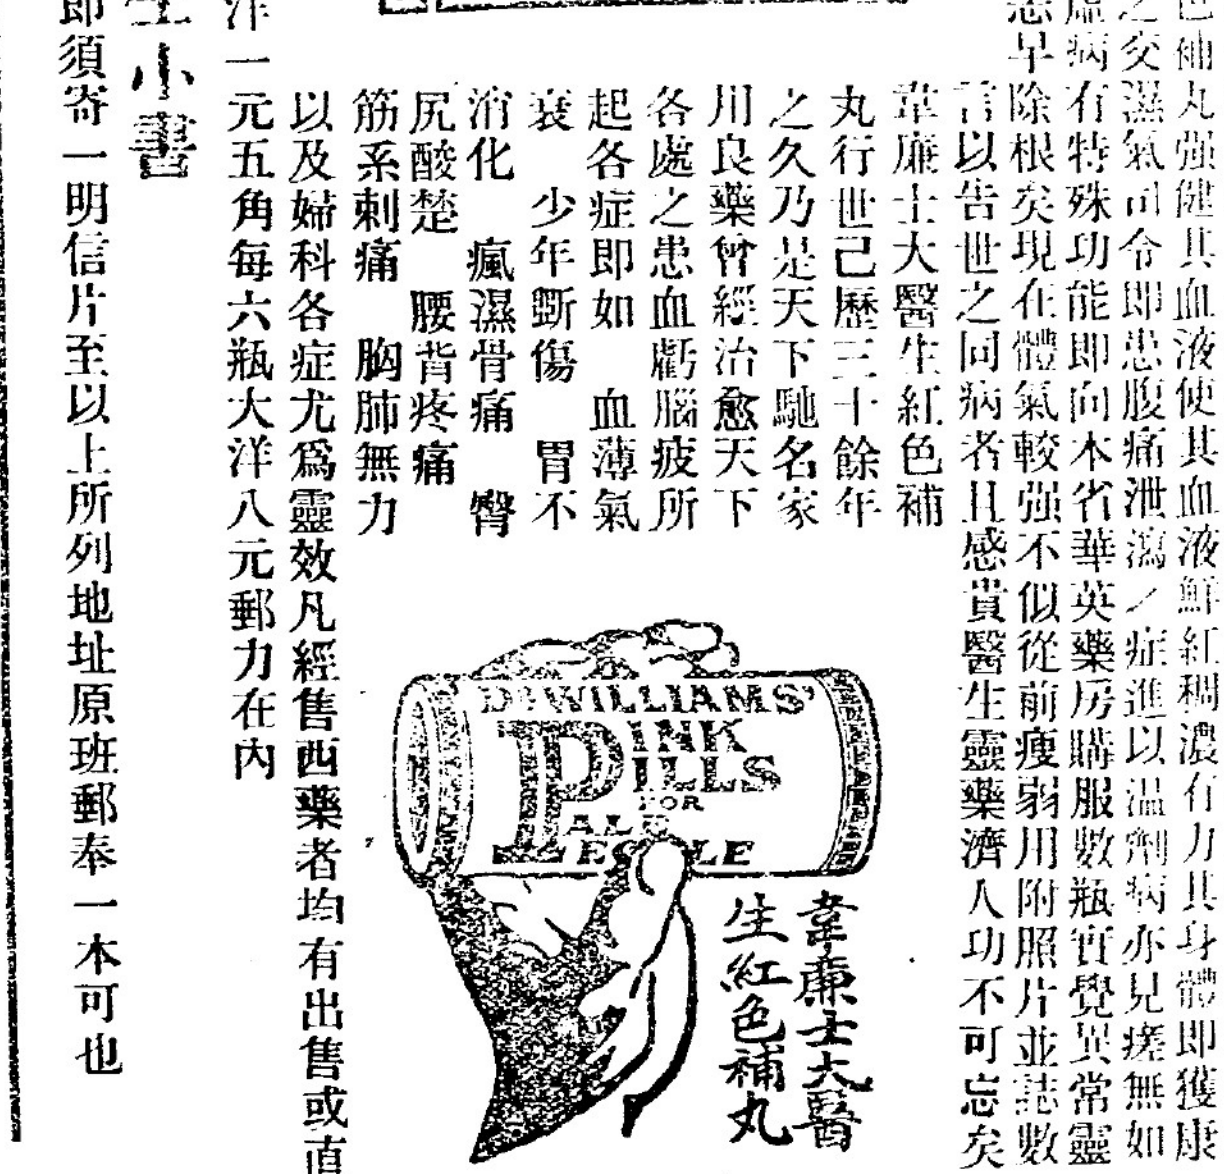 色補丸强健其血液使其血液鮮紅稠濃有力其身體即獲康
之交濕氣司令即患腹痛泄瀉ノ症進以温劑病亦見瘥無如
虛病有特殊功能即向本省華英藥房購服數瓶實覺異常靈
早除根矣現在體氣較强不似從前瘦弱用附照片並誌數
言以告世之同病者且感貴醫生靈藥濟人功不可忘矣
韋廉士大醫生紅色補
丸行世己歷三十餘年
之久乃是天下馳名家
川良藥曾經治愈天下
各處之患血虧腦疲所
起各症即如 血薄氣
衰 少年斲傷 胃不
消化 瘋濕骨痛 臀
尻酸楚 腰背疼痛
筋系刺痛 胸肺無力
以及婦科各症尤爲靈效凡經售西藥者均有出售或直
洋一元五角每六瓶大洋八元郵力在內
小書
即須寄一明信片至以上所列地址原班郵奉一本可也
DR WILLIAMS'
PINK
PILLS
FOR
PALE
PEOPLE
韋廉士大醫
生紅色補丸